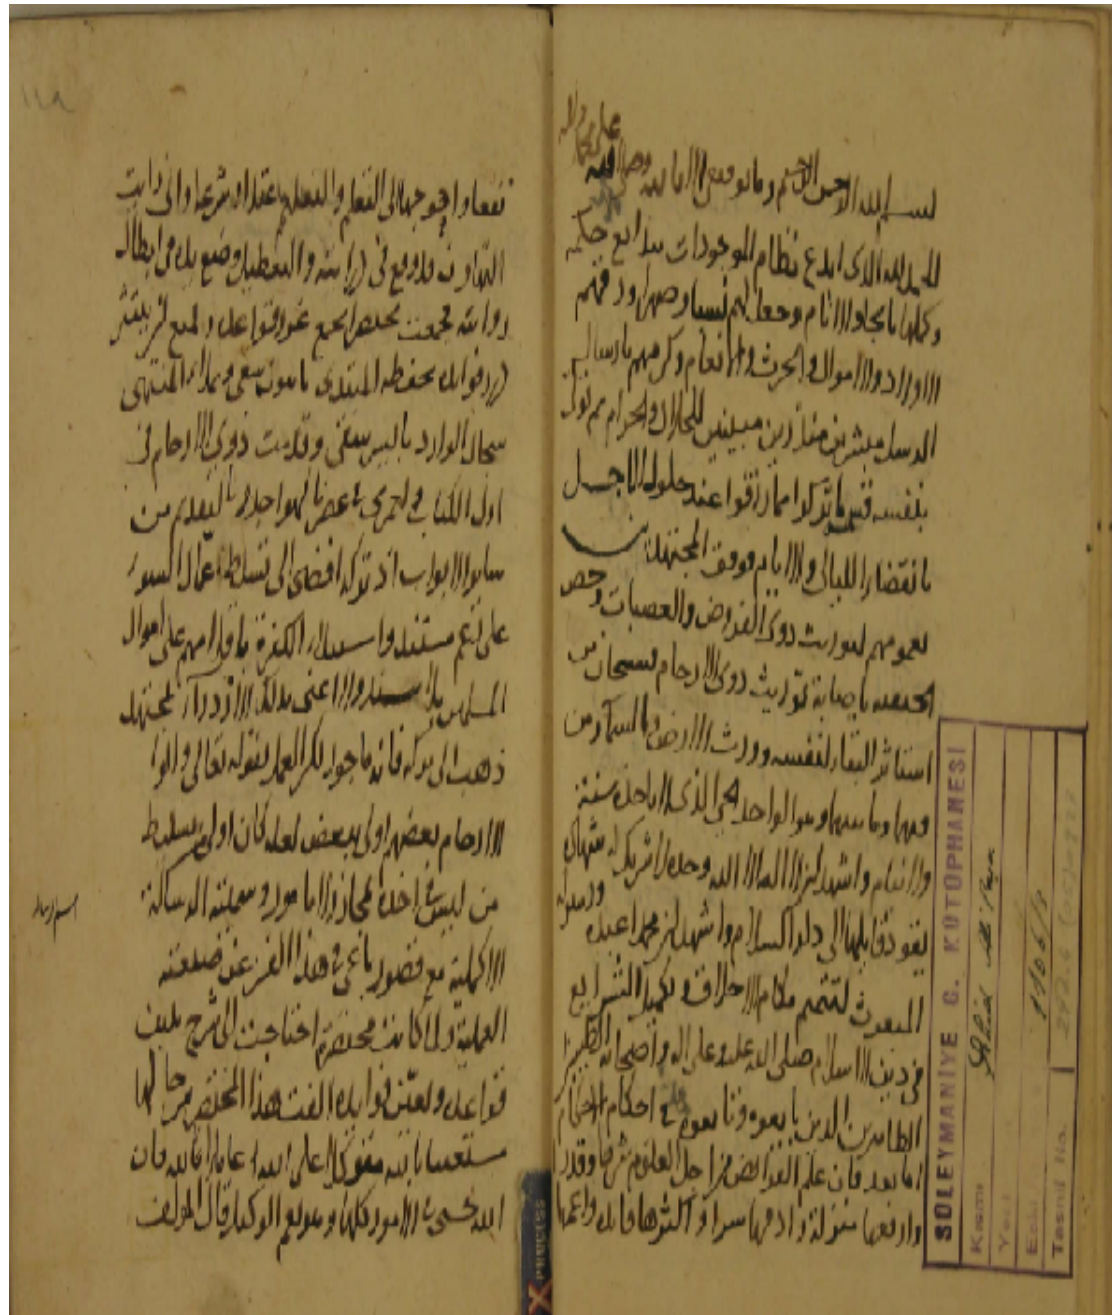 بسم الله الرحمن الرحيم وما توفيقي الا بالله
الحمد لله الذي ابدع نظام الموجودات ببدائع حكمه
وكملها بايجاد الانام وجعل لهم نسبا وصهرا ورزقهم
الاولاد والاموال والحرث والانعام وكرمهم بارسال
الرسل مبشرين منذرين مبينين للحلال والحرام ثم تولى
بنفسه قسم ما تركوا مما رزقوا عند حلول الاجل
بانقضاء الليالي والايام فوفق المجتهدين
بعمومهم لتوريث ذوي الفروض والعصبات وخص
الحنفية باصابة توريث ذوي الارحام فسبحان من
استاثر البقاء لنفسه وورث الارض والسماء ومن
فيهما وما بينهما وهو الواحد الحي الذي لا تاخذه سنة
ولا نيام واشهد ان لا اله الا الله وحده لا شريك له شهادة
يفوز قايلها الى دار السلام واشهد ان محمدا عبده ورسوله
المبعوث لتتميم مكارم الاخلاق وتكميل الشرايع
في دين الاسلام صلى الله عليه وعلى اله واصحابه الطيبين
الطاهرين الذين بايعوه وتابعوه في احكام الاحكام
اما بعد فان علم الفرائض من اجل العلوم شرفا وقدرا
وارفعها منزلة وادقها سرا واكثرها فايدة واعمها
نفعا واحوجها الى التعلم والتعليم اعتقادا وشرعا واني رايت
التهاون قد وقع في دراسته والتعطيل وضع يده في ابطال
روايته فجمعت مختصرا يجمع غرر قواعده ولمع
درر فوايده يحفظه المبتدي باهون سعي المنتهى
وقدمت ذوي الارحام في
اول الكتاب بالتقديم من
ساير الابواب اذ تركه افضى الى تسلط عمال السوء
على غير مستند واستيلاء الكفرة باقدامهم على اموال
المسلمين بلا سند ولا اعني بذلك الازدراء لمجتهد
ذهب الى تركه فانه ماجور لكن العمل بقوله تعالى واولوا
الارحام بعضهم اولى ببعض لعله كان اولى من تسليط
من ليس في اخذه مجازا ولا مامورا وسميته الرسالة
الاكملية مع قصور باعي في هذا الفن عن صنعته
العلية ولما كانت مختصرة احتاجت الى شرح يلين
قواعده ويعين فوايده الفت هذا المختصر
مستعينا بالله متوكلا على الله اعتمادا بالله فان
الله حسبي في الامور كلها وهو نعم الوكيل قال المؤلف
SÜLEYMANIYE G. KÜTÜPHANESI
Kısmı
Yeni
Eski
1106/3
Tasnif No.
X PROCESS